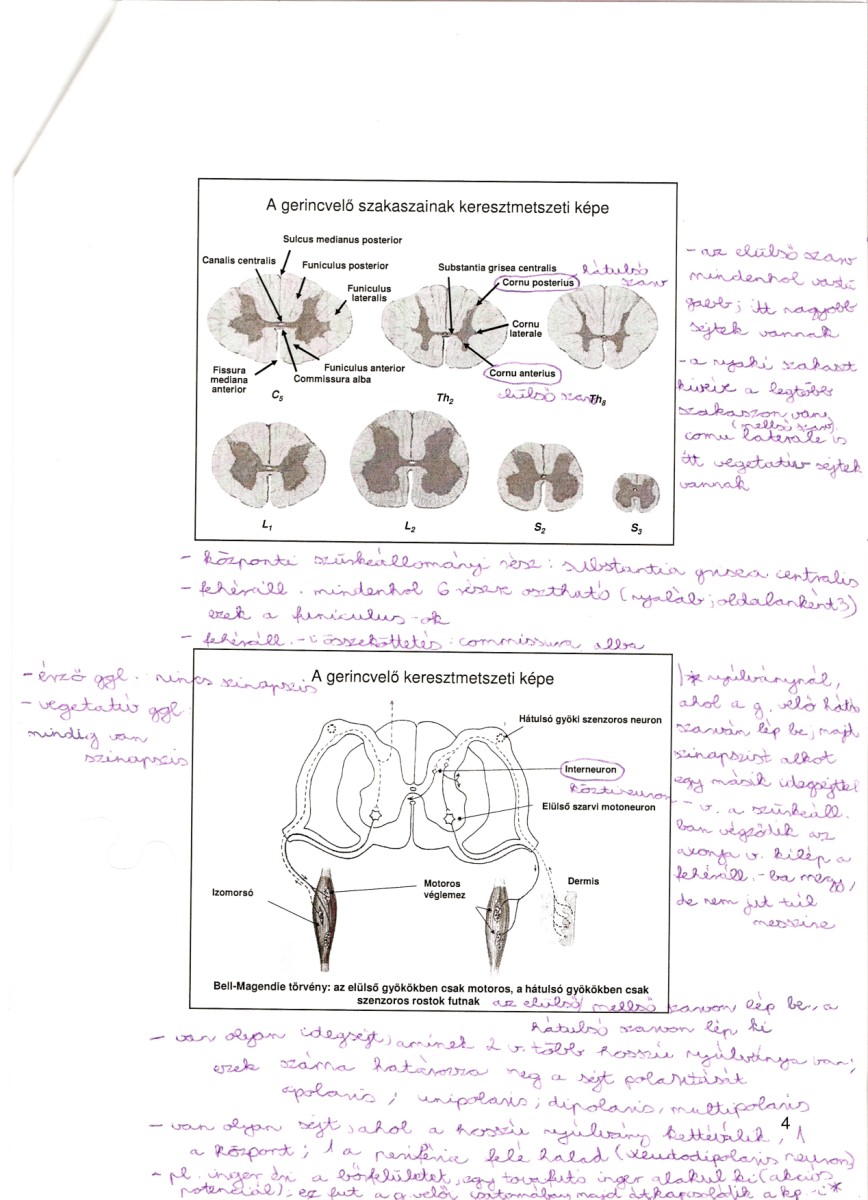 A gerincvelő szakaszainak keresztmetszeti képe
Sulcus medianus posterior
Canalis centralis
Funiculus posterior
Funiculus
lateralis
Fissura
mediana
anterior
Funiculus anterior
Commissura alba
C5
Substantia grisea centralis
Cornu posterius
hátulsó
szarv
Cornu
laterale
Cornu anterius
elülső szarv
Th2
Th8
L1
L2
S2
S3
- az elülső szarv
mindenhol vasta
gabb; itt nagyobb
sejtek vannak
- a nyaki szakaszt
kivéve a legtöbb
szakaszon van
(mellső szarv)
cornu laterale is
itt vegetatív sejtek
vannak
- központi szürkeállományi rész: substantia grisea centralis
- fehéráll. mindenhol 6 részre osztható (nyaláb; oldalanként 3)
ezek a funiculus-ok
- fehéráll.-i összeköttetés: commissura alba
- érző ggl. nincs szinapszis
- vegetatív ggl.
mindig van
szinapszis
A gerincvelő keresztmetszeti képe
Hátulsó gyöki szenzoros neuron
Interneuron
köztineuron
Elülső szarvi motoneuron
Izomorsó
Motoros
véglemez
Dermis
Bell-Magendie törvény: az elülső gyökökben csak motoros, a hátulsó gyökökben csak
szenzoros rostok futnak
az elülső/mellső szarvon lép be, a
hátulsó szarvon lép ki
* nyúlványnál,
ahol a g. velő hátsó
szarván lép be, majd
szinapszist alkot
egy másik idegsejttel
- v. a szürkeáll.
ban végződik az
axonja v. kilép a
fehéráll.-ba megy,
de nem jut túl
messzire
- van olyan idegsejt, aminek 2 v. több hosszú nyúlványa van;
ezek száma határozza meg a sejt polaritását
apolaris; unipolaris; dipolaris, multipolaris
4
- van olyan sejt, ahol a hosszú nyúlvány kettéválik, 1
a központ; 1 a periféria felé halad (pseudodipolaris neuron)
- pl. inger éri a bőrfelületet, egy tovafutó inger alakul ki (akciós
potenciál); ez fut a g. velői majd átkapcsolódik a kp.-i *